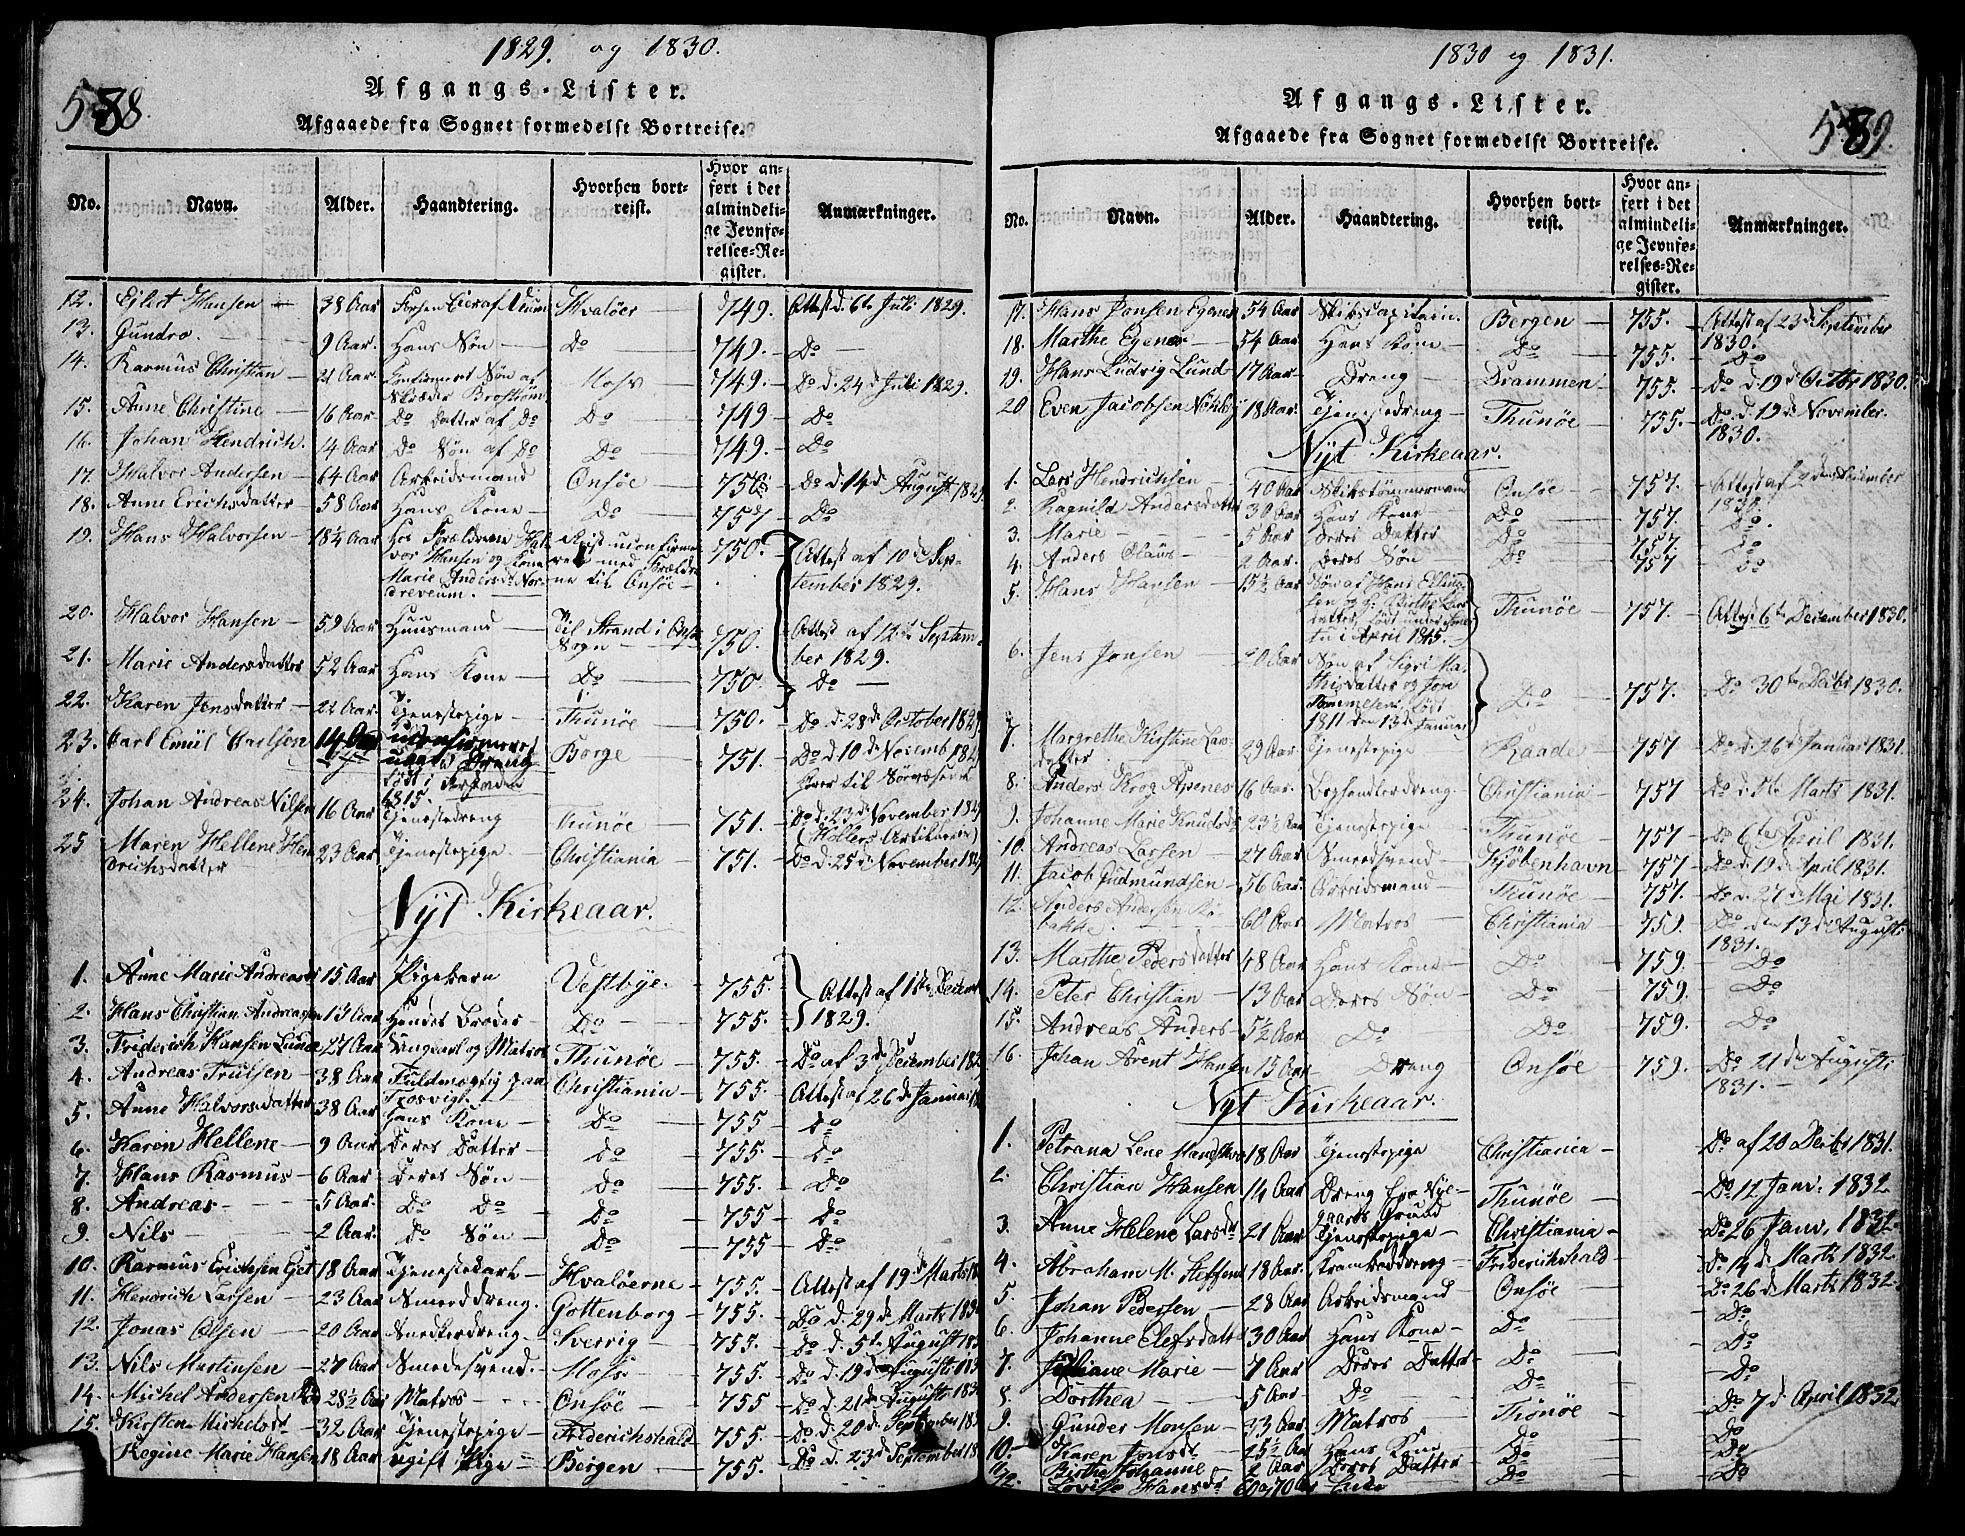 1829. og 1830.
588.
Afgangs-Lister.
Afgaaede fra Sognet formedelst Bortreise.
No. Navn. Alder. Haandtering. Hvorhen bortreist. Hvor anført i det almindelige Jevnførelses-Register. Anmærkninger.
12. Eilert Hansen 38 Aar Hvaløer 749. Attest d. 6te Juli 1829.
13. Gundro. 9 Aar. Hans Søn Do 749. Do
14. Rasmus Christian 21 Aar Confirmeret Søn af Skræder Brostrøm Moss 749. Do d. 24d Juli 1829.
15. Anne Christine 16 Aar Do Datter af Do Do 749 Do
16. Johan Hendrich. 14 Aar Do Søn af Do Do 749. Do
17. Halvor Andersen 64 Aar Arbeidsmand Onsøe 750 Do d. 14d August 1829
18. Anne Erichsdatter 58 Aar Hans Kone Do 757 Do
19. Hans Halvorsen 18¼ Aar Hos Forældrene Halvor Hansen og Kone Marie Andersd. 750. Attest af 10de September 1829.
20. Halvor Hansen 59 Aar Huusmand Til Strand i Onsø Sogn 750. Attest af 12te September 1829.
21. Marie Andersdatter 52 Aar Hans Kone Do 750 Do
22. Karen Jensdatter 22 Aar. Tjenestepige Thunøe 750. Do d. 28d October 1829
23. Carl Emiil Carlsen 14 Aar Borge 751. Do d. 10de Novemb 1829
1815.
24. Johan Andreas Nilsen 16 Aar Tjenestedreng Thunøe 751. Do d. 23d November 1829
25 Maren Hellene Hendrichsdatter 23 Aar Tjenestepige Christiania 751. Do d. 25d November 1829
Nyt Kirkeaar.
1. Anne Marie Andreasd 15 Aar Pigebarn Vestbye. 755. Attest af 1ste Decemb 1829.
2. Hans Christian Andreassen 13 Aar Hendes Broder Do 755.
3. Friderich Hansen Lund 27 Aar Ungkarl og Matros Thunøe 755. Do af 3d December
4. Andreas Trulsen 38 Aar Fuldmægtig paa Trosvig Christiania 755. Attest af 26d Januar
5. Anne Halvorsdatter 38 Aar Hans Kone Do 755 Do
6. Karen Hellene 9 Aar Deres Datter Do 755. Do
7. Hans Rasmus 6 Aar Deres Søn Do 755. Do
8. Andreas 5 Aar. Do Do Do 755 Do
9. Nils 2 Aar. Do Søn Do 755 Do
10. Rasmus Erichsen 18 Aar Tjenestekarl Hvaløerne 755. Attest af 19d Marts
11. Hendrich Larsen 23 Aar Smeddreng. Gottenborg 755. Do d. 29d Marts
12. Jonas Olsen 20 Aar Sverrig 755. Do d. 5te August
13. Nils Martinsen 27 Aar Smedesvend. Moss 755. Do d. 19d Augusti
14. Michel Andersen 28½ Aar Matros Onsøe 755 Do d. 21d Augusti
15. Kirsten Michelsdr 32 Aar Tjenestepige Friderichshald 755. Do d. 20d September
Regine Marie Hansen 18 Aar ugift Pige Bergen 755. Do d. 23d September
1830 og 1831.
589.
Afgangs-Lister.
Afgaaede fra Sognet formedelst Bortreise.
No. Navn. Alder. Haandtering. Hvorhen bortreist. Hvor anført i det almindelige Jevnførelses-Register. Anmærkninger.
17. Hans Jonsen Egenes 54 Aar Skibscapitain. Bergen 755. Attest af 23d September 1830.
18. Marthe Egenes 54 Aar Hans Kone Do 755. Do
19. Hans Ludvig Lund 17 Aar Dreng Drammen 755. Do d 19d Octbr 1830.
20 Even Jacobsen 18 Aar Tjenestedreng Thunøe 755. Do d. 19d November. 1830.
Nyt Kirkeaar.
1. Lars Hendrichsen 40 Aar Skibstømmermand Onsøe 757. Attest af 2den December 1830.
2. Ragnild Andersdatter 30 Aar Hans Kone Do 757. Do.
3. Marie 5 Aar Deres Datter Do 757 Do
4. Anders Olaus 2 Aar. Deres Søn Do 757 Do
5. Hans Hansen 15½ Aar Søn af Hans Ellingsen Thunøe 757. Attest 6te December 1830.
6. Jens Jonsen 20 Aar Søn af Sigri Mathisdatter og Jon Tommesen, født 1811 den 13de Januar Do 757. Do 30te Decbr 1830.
7. Margrethe Kirstine Larsdatter 29 Aar Tjenestepige Raade 757 Do d. 26d Januar 1831.
8. Anders Krog Apenes 16 Aar. Christiania 757 Do d. 5te Marts 1831.
9. Johanne Marie Knudsdr 23½ Aar Tjenestepige Thunøe 757 Do 6te April 1831.
10. Andreas Larsen 27 Aar Smedsvend Kjøbenhavn 757 Do d. 19d April 1831.
11. Jacob Gudmundsen 56 Aar. Arbeidsmand Thunøe 757. Do d. 27d Mai 1831.
12. Anders Andersen 60 Aar Matros Christiania 759. Do den 13d Augusti 1831.
13. Marthe Pedersdatter 48 Aar Hans Kone Do 759. Do
14. Peter Christian 13 Aar Deres Søn Do 759. Do
15. Andreas Anders 5½ Aar Do Do 759. Do
16. Johan Arent Hansen 15 Aar Dreng Onsøe 759. Do 21d Augusti 1831.
Nyt Kirkeaar.
1. Petrana Lene 18 Aar Tjenestepige Christiania Do af 20 Decbr 1831.
2. Christian Hansen 14 Aar Dreng fra Nygaards Grund Thunøe Do 12 Janv. 1832
3. Anne Helene Larsdr 21 Aar Tjenestepige Christiania Do 26 Janv. 1832
4. Abraham M. Steffens 18 Aar Friderichshald Do 14d Marts 1832.
5. Johan Pedersen 28 Aar Arbeidsmand Onsøe Do 26d Marts 1832
6. Johanne Olefsdatt 30 Aar Hans Kone Do Do
7. Juliane Marie 7 Aar Deres Datter Do Do
8. Dorthea 5 Aar Do Do Do
9. Gunder Monsen 33 Aar Matros Thønøe Do 7d April 1832
10. Karen Jonsdr 25½ Aar Hans Kone Do Do
11. Birthe Johanne 2 Aar Deres Datter Do Do
12. Lovise Hansdr Do Do